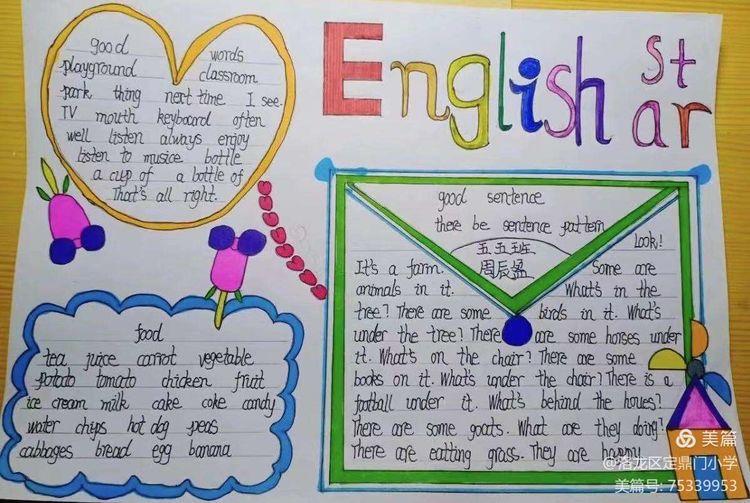 English star
good words
playground classroom
park thing next time I see.
TV mouth keyboard often
well listen always enjoy
listen to musice bottle
a cup of a bottle of
That's all right.
food
tea juice carrot vegetable
potato tomato chicken fruit
ice cream milk cake coke candy
water chips hot dog peas
cabbages bread egg banana
good sentence
there be sentence pattern
五五班
周辰
Look!
It's a farm. Some are
animals in it. What's in the
tree? There are some birds in it. What's
under the tree? There are some horses under
it. What's on the chair? There are some
books on it. What's under the chair? There is a
football under it. What's behind the houes?
There are some goats. What are they doing?
There are eatting grass. They are happy
美篇
@洛龙区定鼎门小学
美篇号: 75339953